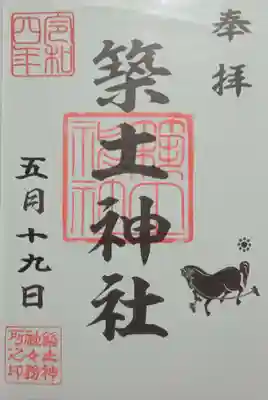 奉拝
築土神社
令和
四年
五月十九日
築土神
社々務
所之印